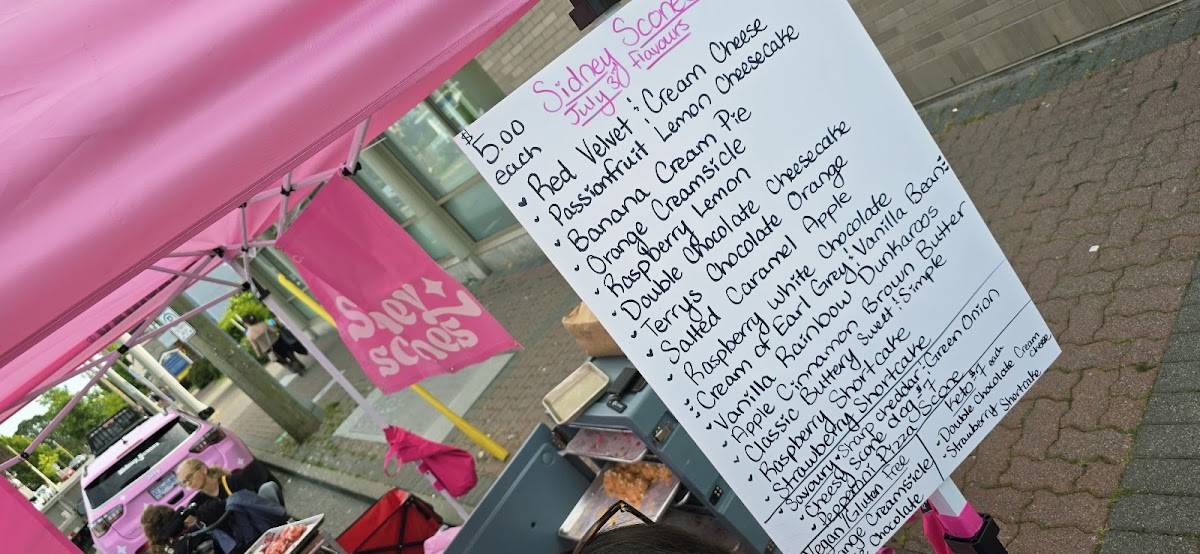 Sidney Scones
July 3rd flavours
$5.00 each
Red Velvet & Cream Cheese
Passionfruit Lemon Cheesecake
Banana Cream Pie
Orange Creamsicle
Raspberry Lemon
Double Chocolate Cheesecake
Terrys Chocolate Orange
Salted Caramel Apple
Raspberry White Chocolate
Cream of Earl Grey & Vanilla Bean
Vanilla Rainbow Dunkaroos
Apple Cinnamon Brown Butter
Classic Buttery Sweet & Simple
Raspberry Shortcake
Strawberry Shortcake
Savoury & Sharp cheddar & Green Onion
Cheesy Scone dog $7
Pepperoni Pizza Scone
Vegan/Gluten Free
Orange Creamsicle
Chocolate
Keto $7 each
Cream Cheese
Double Chocolate
Strawberry Shortcake
Sney
scnes